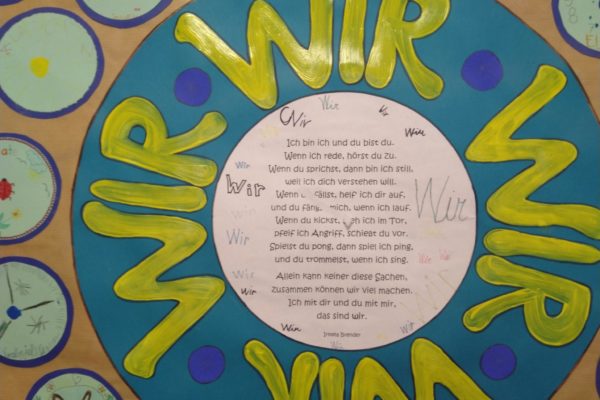 WIR
WIR
WIR
WIR
WIR
WIR
Wir
Wir
Wir
Wir
Wir
Wir
Wir
Wir
Wir
Wir
Ich bin ich und du bist du.
Wenn ich rede, hörst du zu.
Wenn du sprichst, dann bin ich still,
weil ich dich verstehen will.
Wenn fällst, helf ich dir auf,
und du fäng mich, wenn ich lauf.
Wenn du kickst, ich im Tor,
pfeif ich Angriff, schießt du vor.
Spielst du pong, dann spiel ich ping,
und du trommelst, wenn ich sing.
Allein kann keiner diese Sachen,
zusammen können wir viel machen.
Ich mit dir und du mit mir,
das sind wir.
Irmela Brender